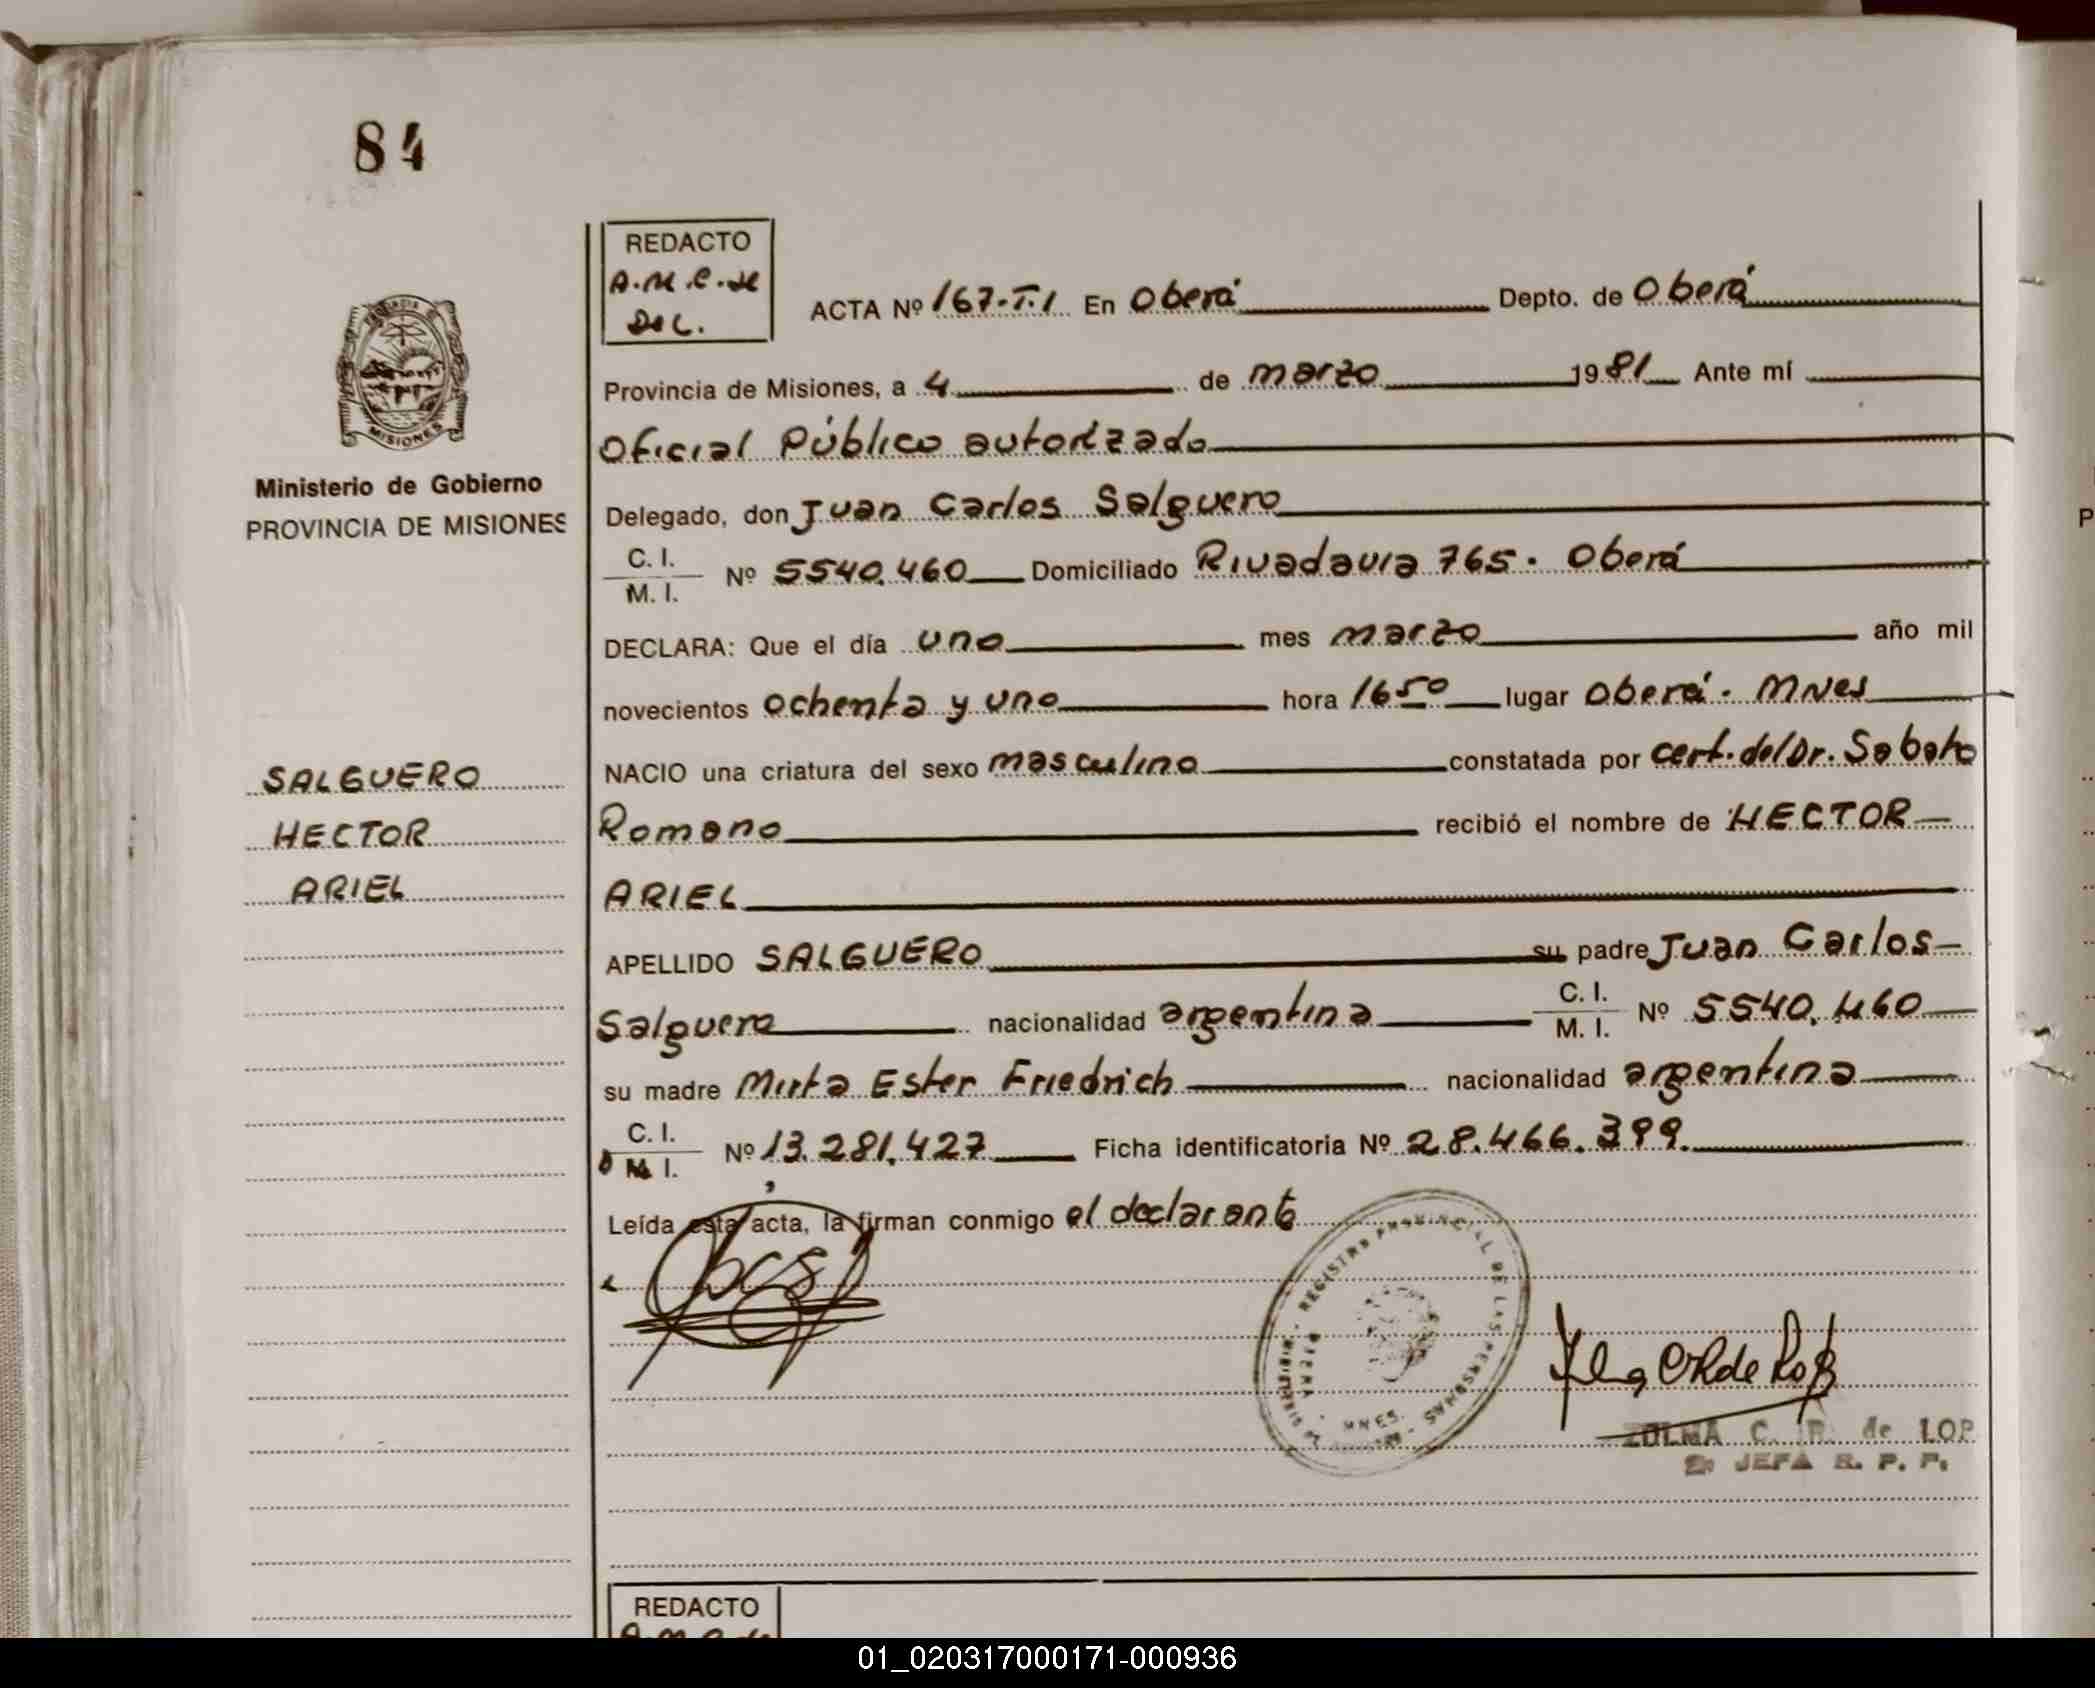 84
REDACTO
A.M.C. de
DEL.
ACTA Nº 167-T.I En Oberá Depto. de Oberá
Provincia de Misiones, a 4 de marzo 1981 Ante mí
Oficial Público autorizado
Delegado, don Juan Carlos Salguero
C. I.
M. I. Nº 5540.460 Domiciliado Rivadavia 765. Oberá
DECLARA: Que el día uno mes marzo año mil
novecientos ochenta y uno hora 16 50 lugar Oberá. MNes
NACIO una criatura del sexo masculino constatada por cert. del Dr. Sabato
Romano recibió el nombre de HECTOR
ARIEL
APELLIDO SALGUERO su padre Juan Carlos
Salguero nacionalidad argentina C. I.
M. I. Nº 5540.460
su madre Mirta Ester Friedrich nacionalidad argentina
C. I.
M. I. Nº 13.281.427 Ficha identificatoria Nº 28.466.399.
Leída esta acta, la firman conmigo el declarante
REGISTRO PROVINCIAL DE LAS PERSONAS
MNES.
ZULMA C. R. de LOP
2ª JEFA R. P. P.
MISIONES
Ministerio de Gobierno
PROVINCIA DE MISIONES
SALGUERO
HECTOR
ARIEL
REDACTO
P
01_020317000171-000936